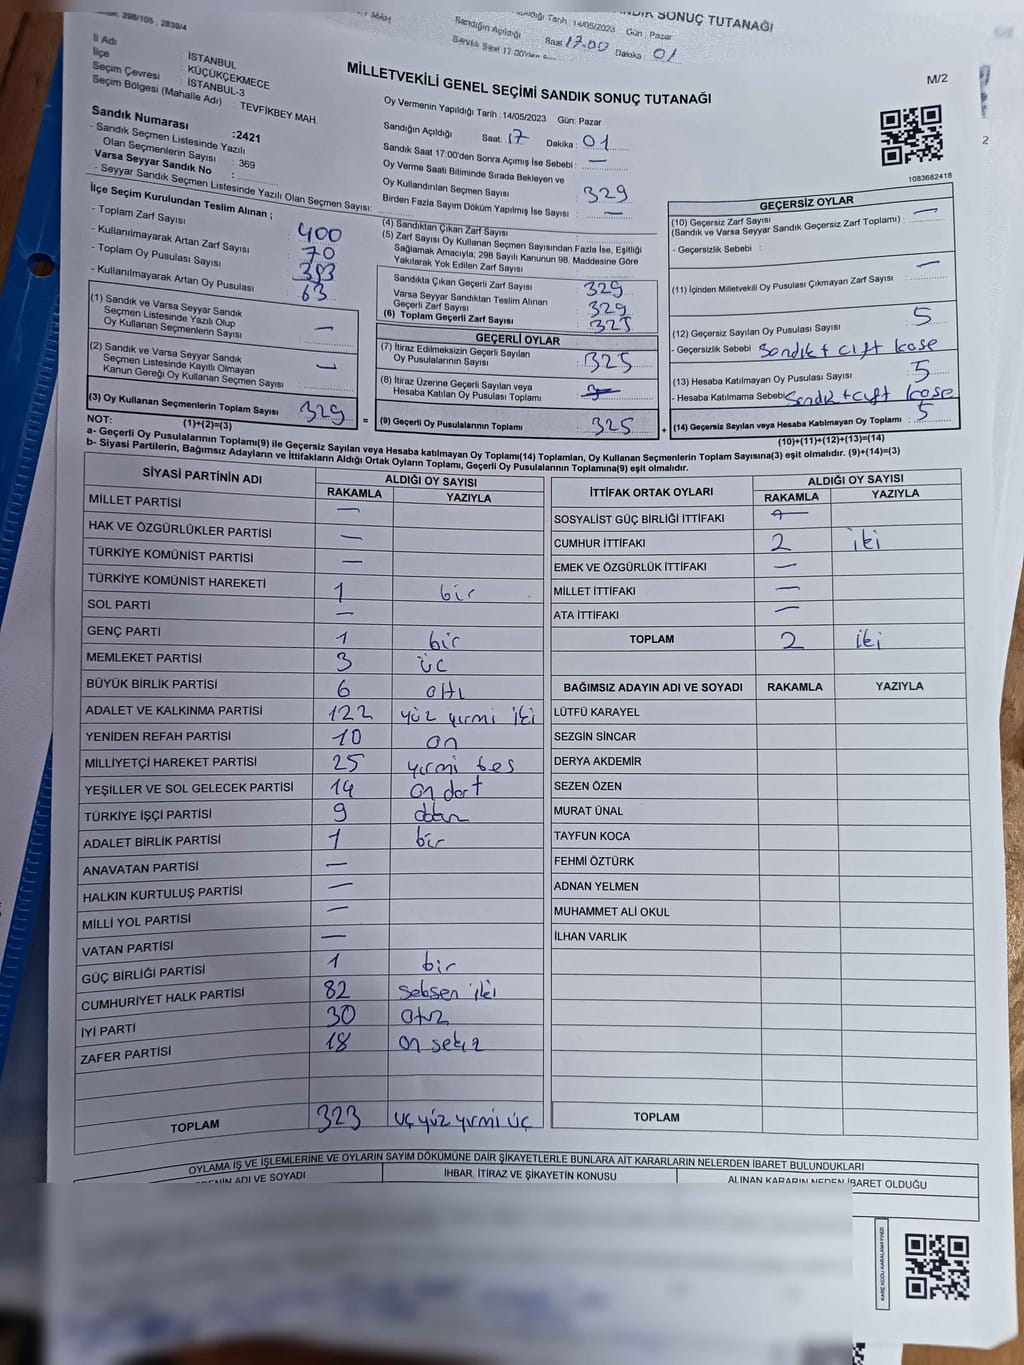 298/105 , 2839/4
MAH
SONUÇ TUTANAĞI
Tarih : 14/05/2023 Gün : Pazar
Sandığın Açıldığı Saat 17.00 Dakika : 01
Sandık Saat 17:00'den
İl Adı : İSTANBUL
İlçe : KÜÇÜKÇEKMECE
Seçim Çevresi : İSTANBUL-3
Seçim Bölgesi (Mahalle Adı) : TEVFİKBEY MAH.
Sandık Numarası :2421
- Sandık Seçmen Listesinde Yazılı
Olan Seçmenlerin Sayısı : 369
Varsa Seyyar Sandık No :
- Seyyar Sandık Seçmen Listesinde Yazılı Olan Seçmen Sayısı:
MİLLETVEKİLİ GENEL SEÇİMİ SANDIK SONUÇ TUTANAĞI
M/2
2
1083682418
Oy Vermenin Yapıldığı Tarih : 14/05/2023 Gün: Pazar
Sandığın Açıldığı Saat: 17 Dakika : 01
Sandık Saat 17:00'den Sonra Açımış İse Sebebi : —
Oy Verme Saati Bitiminde Sırada Bekleyen ve
Oy Kullandırılan Seçmen Sayısı 329
Birden Fazla Sayım Döküm Yapılmış İse Sayısı : —
İlçe Seçim Kurulundan Teslim Alınan ;
- Toplam Zarf Sayısı 400
- Kullanılmayarak Artan Zarf Sayısı 70
- Toplam Oy Pusulası Sayısı
- Kullanılmayarak Artan Oy Pusulası 63
(1) Sandık ve Varsa Seyyar Sandık
Seçmen Listesinde Yazılı Olup
Oy Kullanan Seçmenlerin Sayısı : —
(2) Sandık ve Varsa Seyyar Sandık
Seçmen Listesinde Kayıtlı Olmayan
Kanun Gereği Oy Kullanan Seçmen Sayısı : —
(3) Oy Kullanan Seçmenlerin Toplam Sayısı 329
(1)+(2)=(3)
(4) Sandıktan Çıkan Zarf Sayısı :
(5) Zarf Sayısı Oy Kullanan Seçmen Sayısından Fazla İse, Eşitliği
Sağlamak Amacıyla, 298 Sayılı Kanunun 98. Maddesine Göre
Yakılarak Yok Edilen Zarf Sayısı :
Sandıkta Çıkan Geçerli Zarf Sayısı : 329
Varsa Seyyar Sandıktan Teslim Alınan
Geçerli Zarf Sayısı : 329
(6) Toplam Geçerli Zarf Sayısı : 325
GEÇERLİ OYLAR
(7) İtiraz Edilmeksizin Geçerli Sayılan
Oy Pusulalarının Sayısı : 325
(8) İtiraz Üzerine Geçerli Sayılan veya
Hesaba Katılan Oy Pusulası Toplamı :
= (9) Geçerli Oy Pusulalarının Toplamı : 325
GEÇERSİZ OYLAR
(10) Geçersiz Zarf Sayısı
(Sandık ve Varsa Seyyar Sandık Geçersiz Zarf Toplamı) : —
- Geçersizlik Sebebi :
(11) İçinden Milletvekili Oy Pusulası Çıkmayan Zarf Sayısı : —
(12) Geçersiz Sayılan Oy Pusulası Sayısı : 5
- Geçersizlik Sebebi : Sandık + cift kase
(13) Hesaba Katılmayan Oy Pusulası Sayısı : 5
- Hesaba Katılmama Sebebi: Sandık + cift kase
+ (14) Geçersiz Sayılan veya Hesaba Katılmayan Oy Toplamı : 5
(10)+(11)+(12)+(13)=(14)
NOT:
a- Geçerli Oy Pusulalarının Toplamı(9) ile Geçersiz Sayılan veya Hesaba katılmayan Oy Toplamı(14) Toplamları, Oy Kullanan Seçmenlerin Toplam Sayısına(3) eşit olmalıdır. (9)+(14)=(3)
b- Siyasi Partilerin, Bağımsız Adayların ve İttifakların Aldığı Ortak Oyların Toplamı, Geçerli Oy Pusulalarının Toplamına(9) eşit olmalıdır.
SİYASİ PARTİNİN ADI ALDIĞI OY SAYISI
RAKAMLA YAZIYLA
MİLLET PARTİSİ —
HAK VE ÖZGÜRLÜKLER PARTİSİ —
TÜRKİYE KOMÜNİST PARTİSİ —
TÜRKİYE KOMÜNİST HAREKETİ 1 bir
SOL PARTİ —
GENÇ PARTİ 1 bir
MEMLEKET PARTİSİ 3 üc
BÜYÜK BİRLİK PARTİSİ 6 altı
ADALET VE KALKINMA PARTİSİ 122 yüz yırmi iki
YENİDEN REFAH PARTİSİ 10 on
MİLLİYETÇİ HAREKET PARTİSİ 25 yırmi bes
YEŞİLLER VE SOL GELECEK PARTİSİ 14 on dort
TÜRKİYE İŞÇİ PARTİSİ 9 dokuz
ADALET BİRLİK PARTİSİ 1 bir
ANAVATAN PARTİSİ —
HALKIN KURTULUŞ PARTİSİ —
MİLLİ YOL PARTİSİ —
VATAN PARTİSİ —
GÜÇ BİRLİĞİ PARTİSİ 1 bir
CUMHURİYET HALK PARTİSİ 82 seksen iki
İYİ PARTİ 30 otuz
ZAFER PARTİSİ 18 on sekız
TOPLAM 323 üç yüz yırmi üç
İTTİFAK ORTAK OYLARI ALDIĞI OY SAYISI
RAKAMLA YAZIYLA
SOSYALİST GÜÇ BİRLİĞİ İTTİFAKI
CUMHUR İTTİFAKI 2 iki
EMEK VE ÖZGÜRLÜK İTTİFAKI —
MİLLET İTTİFAKI —
ATA İTTİFAKI —
TOPLAM 2 iki
BAĞIMSIZ ADAYIN ADI VE SOYADI RAKAMLA YAZIYLA
LÜTFÜ KARAYEL
SEZGİN SİNCAR
DERYA AKDEMİR
SEZEN ÖZEN
MURAT ÜNAL
TAYFUN KOCA
FEHMİ ÖZTÜRK
ADNAN YELMEN
MUHAMMET ALİ OKUL
İLHAN VARLIK
TOPLAM
OYLAMA İŞ VE İŞLEMLERİNE VE OYLARIN SAYIM DÖKÜMÜNE DAİR ŞİKAYETLERLE BUNLARA AİT KARARLARIN NELERDEN İBARET BULUNDUKLARI
ADI VE SOYADI İHBAR, İTİRAZ VE ŞİKAYETİN KONUSU ALINAN KARARIN NEDEN İBARET OLDUĞU